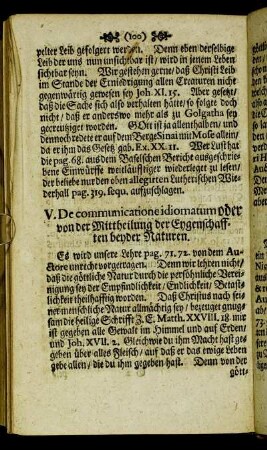 (100)
pelter Leib gefolgert werden. Denn eben derselbige
Leib der uns nun unsichtbar ist/ wird in jenem Leben
sichtbar seyn. Wir gestehen gerne/ daß Christi Leib
im Stande der Erniedrigung allen Creaturen nicht
gegenwärtig gewesen sey Joh. XI. 15. Aber gesetzt/
daß die Sache sich also verhalten hätte/ so folgte doch
nicht/ daß er anderswo mehr als zu Golgatha sey
gecreutziget worden. GOtt ist ja allenthalben/ und
dennoch redete er auf dem Berge Sinai mit Mose allein/
da er ihm das Gesetz gab. Ex. XX. 11. Wer Lust hat
die pag. 68. aus dem Baselschen Bericht ausgeschrie-
bene Einwürffe weitläufftiger wiederleget zu lesen/
der beliebe nur den oben allegirten Lutherischen Wie-
derhall pag. 319. sequ. aufzuschlagen.
V. De communicatione idiomatum oder
von der Mittheilung der Eygenschaff-
ten beyder Naturen.
Es wird unsere Lehre pag. 71. 72. von dem Au-
ctore unrecht vorgetragen. Denn wir lehren nicht/
daß die göttliche Natur durch die persöhnliche Verei-
nigung sey der Empfindlichkeit/ Endlichkeit/ Betast-
lichkeit theilhafftig worden. Daß Christus nach sei-
ner menschliche Natur allmächtig sey/ bezeuget gnug-
sam die heilige Schrifft Z. E. Matth. XXVIII. 18. mir
ist gegeben alle Gewalt im Himmel und auf Erden/
und Joh. XVII. 2. Gleichwie du ihm Macht hast ge-
geben über alles Fleisch/ auf daß er das ewige Leben
gebe allen/ die du ihm gegeben hast. Denn von der
gött-